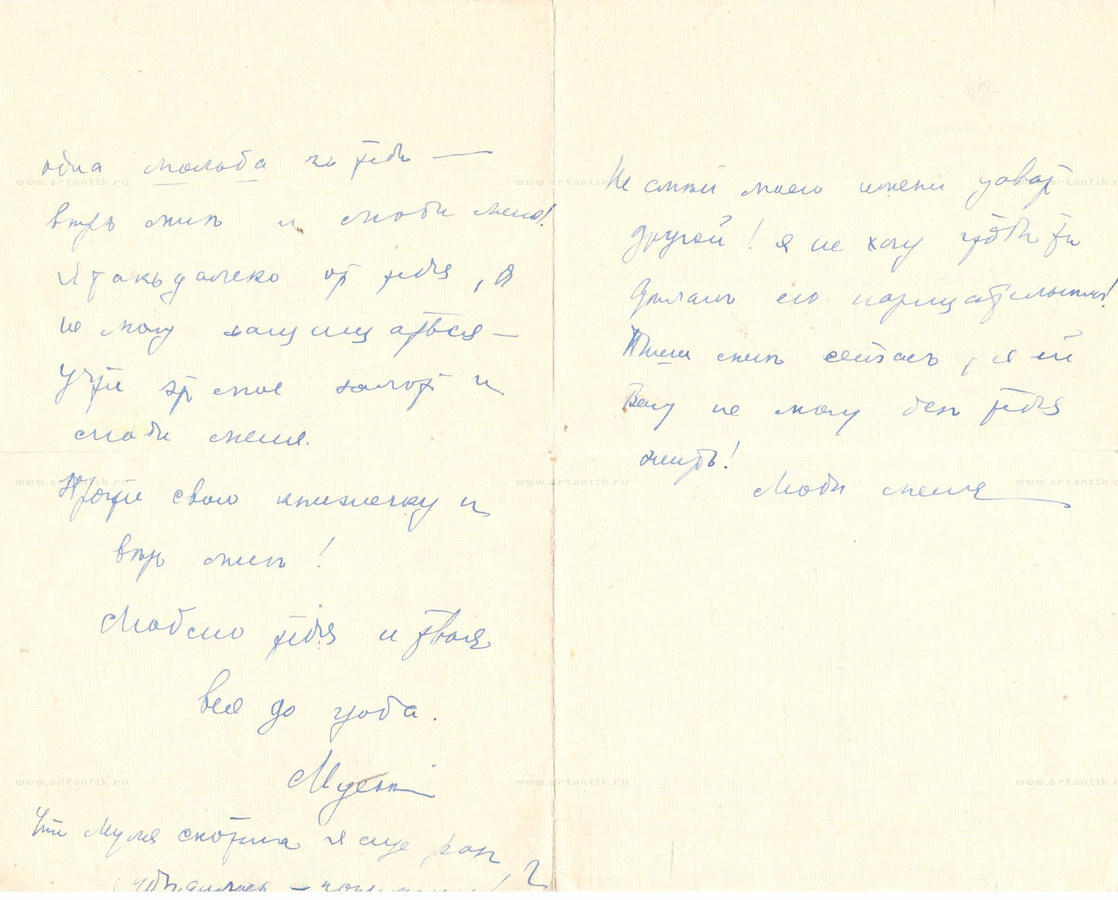 одна мольба к тебе —
верь мне и люби меня!
Я так далеко от тебя, я
не могу защищаться —
Учти это мое и
люби меня.
Прочти свою книжечку и
верь мне!
Люблю тебя и твоя
вся до гроба.
Муся скотина я еще раз
Не смей моего имени
другой! я не хочу чтобы ты
делал его нарицательным!
Пиши мне сейчас, я ей
Богу не могу без тебя
жить!
Люби меня
www.artantik.ru